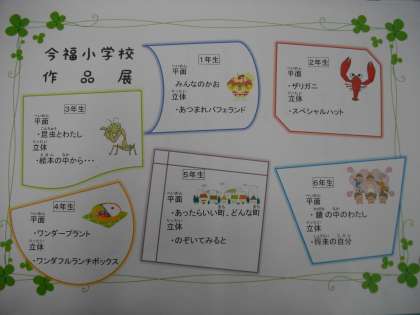 今福小学校
作品展
1年生
平面
みんなのかお
立体
・あつまれパフェランド
2年生
平面
・ザリガニ
立体
・スペシャルハット
3年生
平面
・昆虫とわたし
立体
・絵本の中から・・・
4年生
平面
・ワンダープラント
立体
・ワンダフルランチボックス
5年生
平面
・あったらいい町、どんな町
立体
・のぞいてみると
6年生
平面
・鏡の中のわたし
立体
・将来の自分